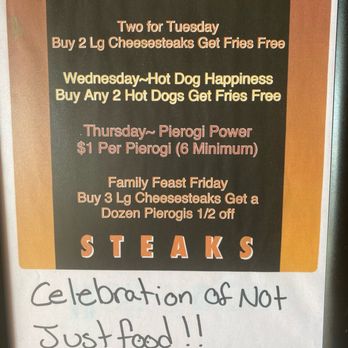 Two for Tuesday
Buy 2 Lg Cheesesteaks Get Fries Free
Wednesday~Hot Dog Happiness
Buy Any 2 Hot Dogs Get Fries Free
Thursday~ Pierogi Power
$1 Per Pierogi (6 Minimum)
Family Feast Friday
Buy 3 Lg Cheesesteaks Get a
Dozen Pierogis 1/2 off
STEAKS
Celebration of Not
Just food!!